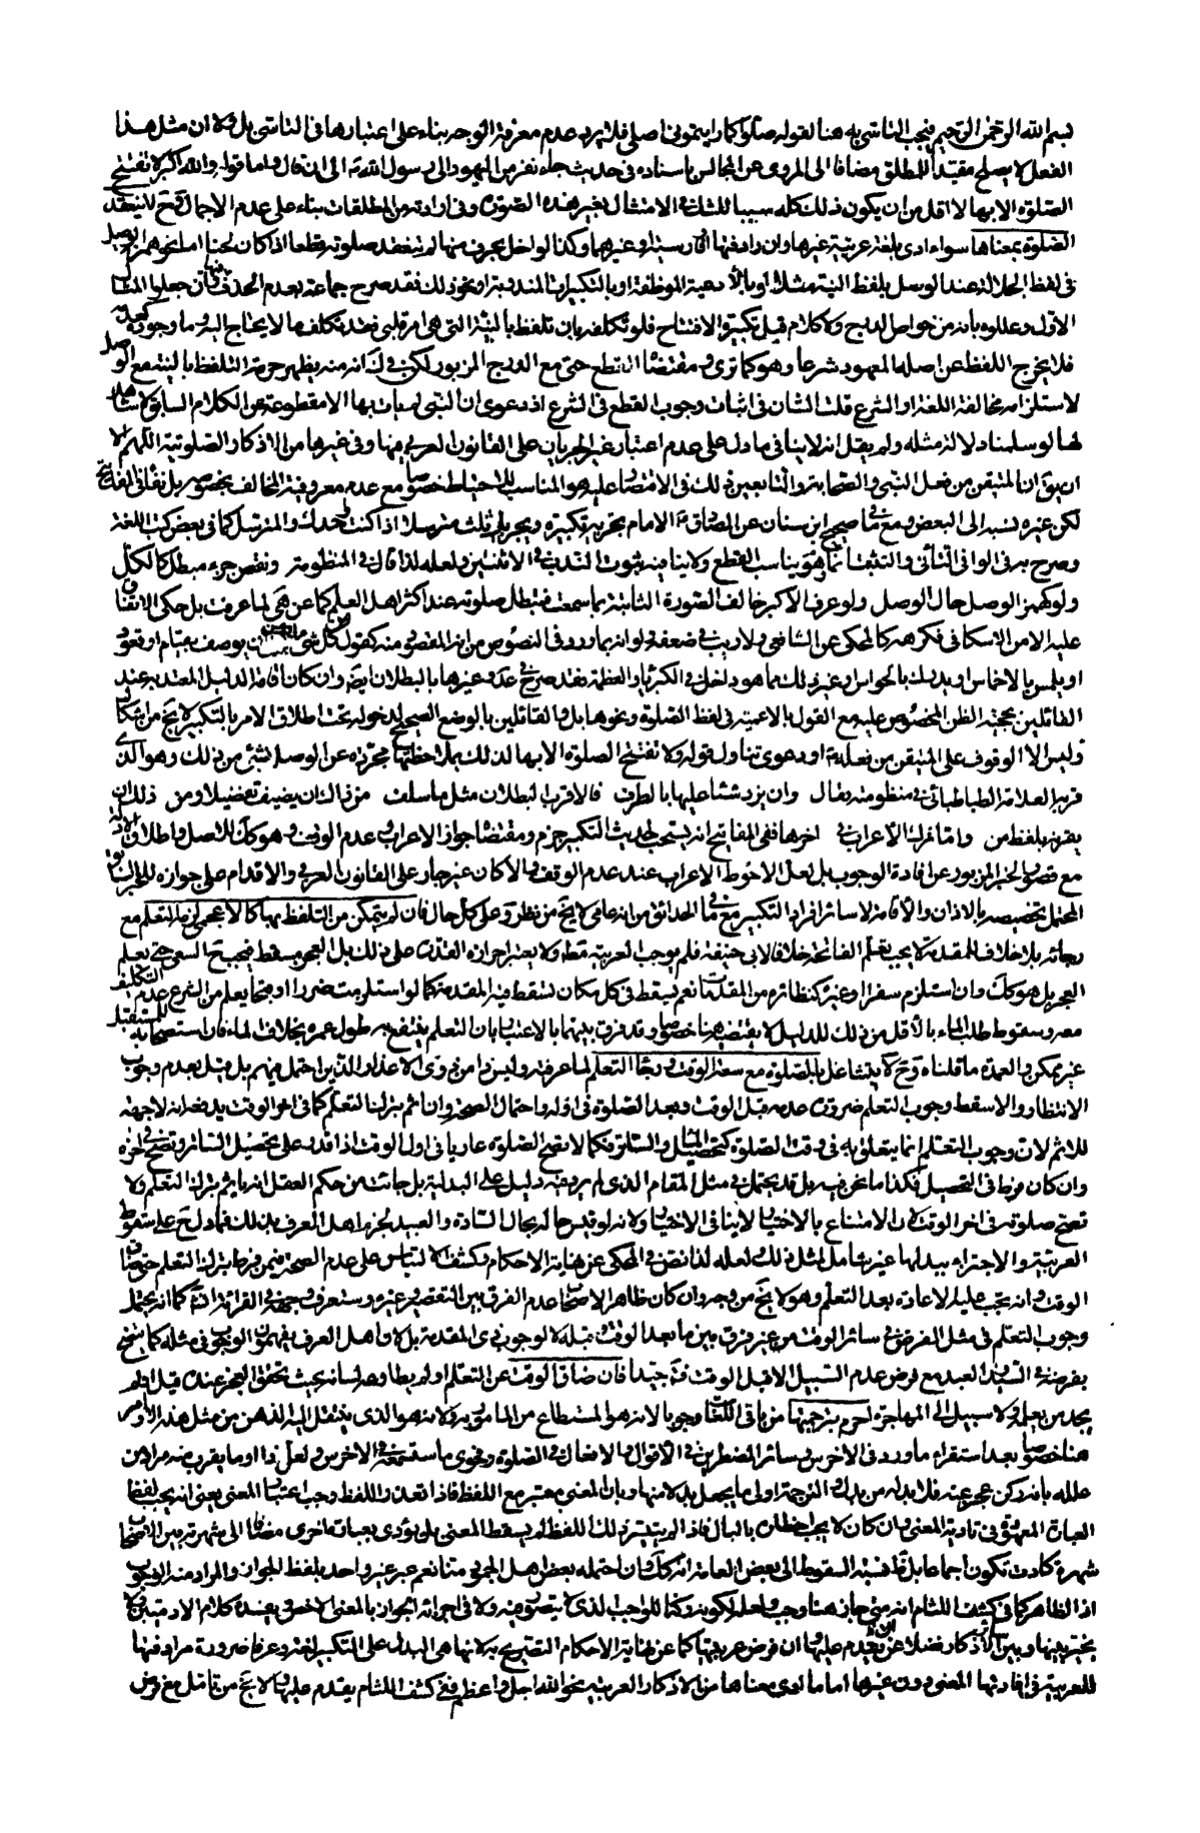 بسم الله الرحمن الرحيم فيجب التاسي به هنا لقوله صلوا كما رايتموني اصلي فلا يرد عدم معرفة الوجه بناء على اعتبارها في التاسي بل ولا ان مثل هذا
الفعل لا يصلح مقيدا للمطلق مضافا الى المروي عن المجالس باسناده في حديث جاء نفر من اليهود الى رسول الله الى ان قال واما قوله والله اكبر لا تفتتح
الصلوة الا بها لا اقل من ان يكون ذلك كله سببا للشك في الامتثال بغير هذه الصورة وفي ارادته من المطلقات بناء على عدم الاجمال فح لا ينعقد
الصلوة بمعناها سواء ادي بلغة عربية غيرها وان رادفتها او فارسية او غيرهما وكذا لو اخل بحرف منها لم تنعقد صلوته قطعا اذ كان لحنا اما نحو همزة
في لفظ الجلالة عند الوصل بلفظ النية مثلا او بالأدعية الموظفة او بالتكبيرات المندوبة او نحو ذلك فقد صرح جماعة بعدم الحذف
الاول وعللوه بانه من خواص الدرج ولا كلام قبل تكبيرة الافتتاح فلو تكلفه بان تلفظ بالنية التي هي امر قلبي فقد تكلف ما لا يحتاج اليه
فلا يخرج اللفظ عن اصله المعهود شرعا وهو كما ترى ومقتضاه القطع حتى مع الدرج المزبور لكن في ك انه منه يظهر حرمة التلفظ بالنية مع
لاستلزامه مخالفة اللغة او الشرع قلت الشان في اثبات وجوب القطع في الشرع اذ دعوى ان النبي لم يات بها الا مقطوعة عن الكلام السابق لا شاهد
لها لو سلمنا دلالة مثله ولم يقل انه لا ينافي ما دل على عدم اعتبار غير الجريان على القانون العربي فيها وفي غيرها من الاذكار الصلوتية اللهم الا
ان يق ان المتيقن من فعل النبي والصحابة والتابعين ذلك في الاقتصار عليه هو المناسب للاحتياط خصوصا مع عدم معروفية المخالف بخصوصه
لكن غيره نسبه الى البعض ومع ما صحيح ابن سنان عن الصادق الامام تجزيه تكبيرة ويجزيك ثلث مترسلا اذا كنت وحدك والمترسل كما في بعض كتب اللغة
وصرح به في الوافي المتأني والتثبت وهو يناسب القطع ولا ينافيه ثبوت الندب في الاثنتين ولعله لذا قال في المنظومة ونقص جزء مبطل كالكل
ولو كهمز الوصل حال الوصل ولو عرف الاكبر خالف الصورة الثابتة بما سمعت فتبطل صلوته عند اكثر اهل العلم كما عن هي لما عرفت بل حكى
عليه الا من الاسكافي فكرهه كالمحكي عن الشافعي ولا ريب في ضعفه ولو انه بما ورد في النصوص من
او يلمس بالاخماس او يدرك بالحواس وغير ذلك مما هو داخل في الكبرياء والعظمة فقد صرح في عد وغيرها بالبطلان ايضا وان كان اقامة الدليل المعتد به عند
القائلين بحجية الظن المخصوص عليه مع القول بالاعمية في لفظ الصلوة ونحوها بل والقائلين بالوضع للصحيح لدخوله تحت اطلاق الامر بالتكبير لا يخ من اشكال
وليس الا الوقوف على المتيقن من فعله او دعوى تناول قوله ولا تفتتح الصلوة الا بها لذلك بملاحظتها مجردة عن الوصل بشئ من ذلك وهو الذي
قربه العلامة الطباطبائي في منظومته فقال وان يزد شئا عليها بالطرف فالاقرب البطلان مثل ما سلف من ذاك ان يضيف تفضيلا ومن ذلك ان
يقرنه بلفظ من واما ترك الأعراب في اخرها ففي المفاتيح انه يستحب لحديث التكبير جزم ومقتضاه جواز الاعراب وعدم الوقف وهو كك للاصل واطلاق الادلة
مع قصور الخبر المزبور عن افادة الوجوب بل لعل الاحوط الاعراب عند عدم الوقف والا كان غير جار على القانون العربي والاقدام على جوازه
المحتمل تخصيصه بالاذان والاقامة لا سائر افراد التكبير مع ما في الحدائق من انه عامي لا يخ من نظر وعلى كل حال فان لم يتمكن من التلفظ بها كالاعجمي لزمه التعلم مع
رجائه بلا خلاف للمقدمة لا يجب تعلم الفاتحة خلافا لابي حنيفة فلم يوجب العربية مط ولا يعتبر احرازه القدرة على ذلك بل العجز مسقط فيجب ح السعي حتى يعلم
العجز بل هو كك وان استلزم سفرا وغيره كنظائره من المقدمات نعم تسقط في كل مكان تسقط فيه المقدمة كما لو استلزمت ضررا او قبحا يعلم من الشرع عدم التكليف
معه وسقوط طلب الماء بالأقل من ذلك للدليل لا يقتضيه هنا خصوصا وقد فرق بينهما بالاعتبار بان التعلم ينتفع به طول عمره بخلاف الماء فان استصحابه للمستقبل
غير ممكن والعمدة ما قلناه وح لا يتشاغل بالصلوة مع سعة الوقت ورجاء التعلم لما عرفت وليس ذا من ذوي الاعذار الذين احتمل فيهم بل قيل بعدم وجوب
الانتظار والا سقط وجوب التعلم ضرورة عدمه قبل الوقت وبعد الصلوة في اوله واحتمال الصحة وان اثم بترك التعلم كما في اخر الوقت يدفعه انه لا جهة
للاثم لان وجوب التعلم انما يتعلق به في وقت الصلوة كتحصيل الماء والساتر فكما لا تصح الصلوة عاريا في اول الوقت اذا قدر على تحصيل الساتر وتصح في اخره
وان كان فرط في التحصيل فكذا ما نحن فيه بل قد يحتمل في مثل المقام الذي لم يرد فيه دليل على البدلية بل جائت من حكم العقل انه ياثم بترك التعلم ولا
تصح صلوته في اخر الوقت لان الامتناع بالاختيار لا ينافي الاختيار ولانه لو قيس حاله بحال السادة والعبيد لجزم اهل العرف بذلك فما دل ح على سقوط
العربية والاجتزاء ببدلها غير شامل لمثل ذلك ولعله لذا نص في المحكي عن نهاية الاحكام وكشف الالتباس على عدم الصحة فيمن فرط بترك التعلم حتى ضاق
الوقت وانه يجب عليه الاعادة بعد التعلم وهو لا يخ من وجه وان كان ظاهر الاصحاب عدم الفرق بين المقصر وغيره وستعرف وجهه في القرائة انش كما انه يحتمل
وجوب التعلم في مثل الفرض في سائر الوقت من غير فرق بين ما بعد الوقت وقبله لا لوجوب ذي المقدمة بل لان اهل العرف يفهمون الوجوب في مثله كما يتضح
بفرضه في السيد والعبد مع فرض عدم السبيل الا قبل الوقت فت جيدا فان ضاق الوقت عن التعلم او لم يطاوعه لسانه بحيث تحقق العجز عنده قبل او لم
يجد من يعلمه ولا سبيل الى المهاجرة احرم بترجمتها من باقي اللغات وجوبا لانه هو المستطاع من المامور به ولانه هو الذي ينتقل اليه الذهن من مثل هذه الاوامر
هنا خصوصا بعد استقراء ما ورد في الاخرس وسائر المضطرين في الاقوال والافعال في الصلوة وفحوى ما ستسمعه في الاخرس ولعل ذا او ما يقرب منه مراد من
علله بانه ركن عجز عنه فلا بد له من بدل والترجمة اولى ما يجعل بدلا منها وبان المعنى معتبر مع اللفظ فاذا تعذر اللفظ وجب اعتبار المعنى يعني انه يجب لفظ
العبارة المعهودة في تادية المعنى وان كان لا يجب اخطاره بالبال فاذا لم يتيسر ذلك اللفظ لم يسقط المعنى بل يؤدى بعبارة اخرى مضافا الى شهرته بين الاصحاب
شهرة كادت تكون اجماعا بل ظ نسبة السقوط الى بعض العامة انه كك وان احتمله بعض اهل الجموح منا نعم عبر غير واحد بلفظ الجواز والمراد منه الوجوب
اذ الظاهر كما في كشف اللثام انه متى جاز هنا وجب ولعله لكونه ركنا للواجب الذي لا يتصور فيه ولا في اجزائه الجواز بالمعنى الاخص ويفيده كلام الاردبيلي ولا
يخير بينها وبين الاذكار فضلا عن تقدم عليها وان فرض عربيتها كما عن نهاية الاحكام التصريح به لانها هي البدل على التكبير لغة وعرفا ضرورة مرادفتها
للعربية في افادتها المعنى دون غيرها اما ما ادى معناها من الاذكار العربية نحو الله اجل واعظم ففي كشف اللثام يقدم عليها ولا يخ من تامل مع فرض